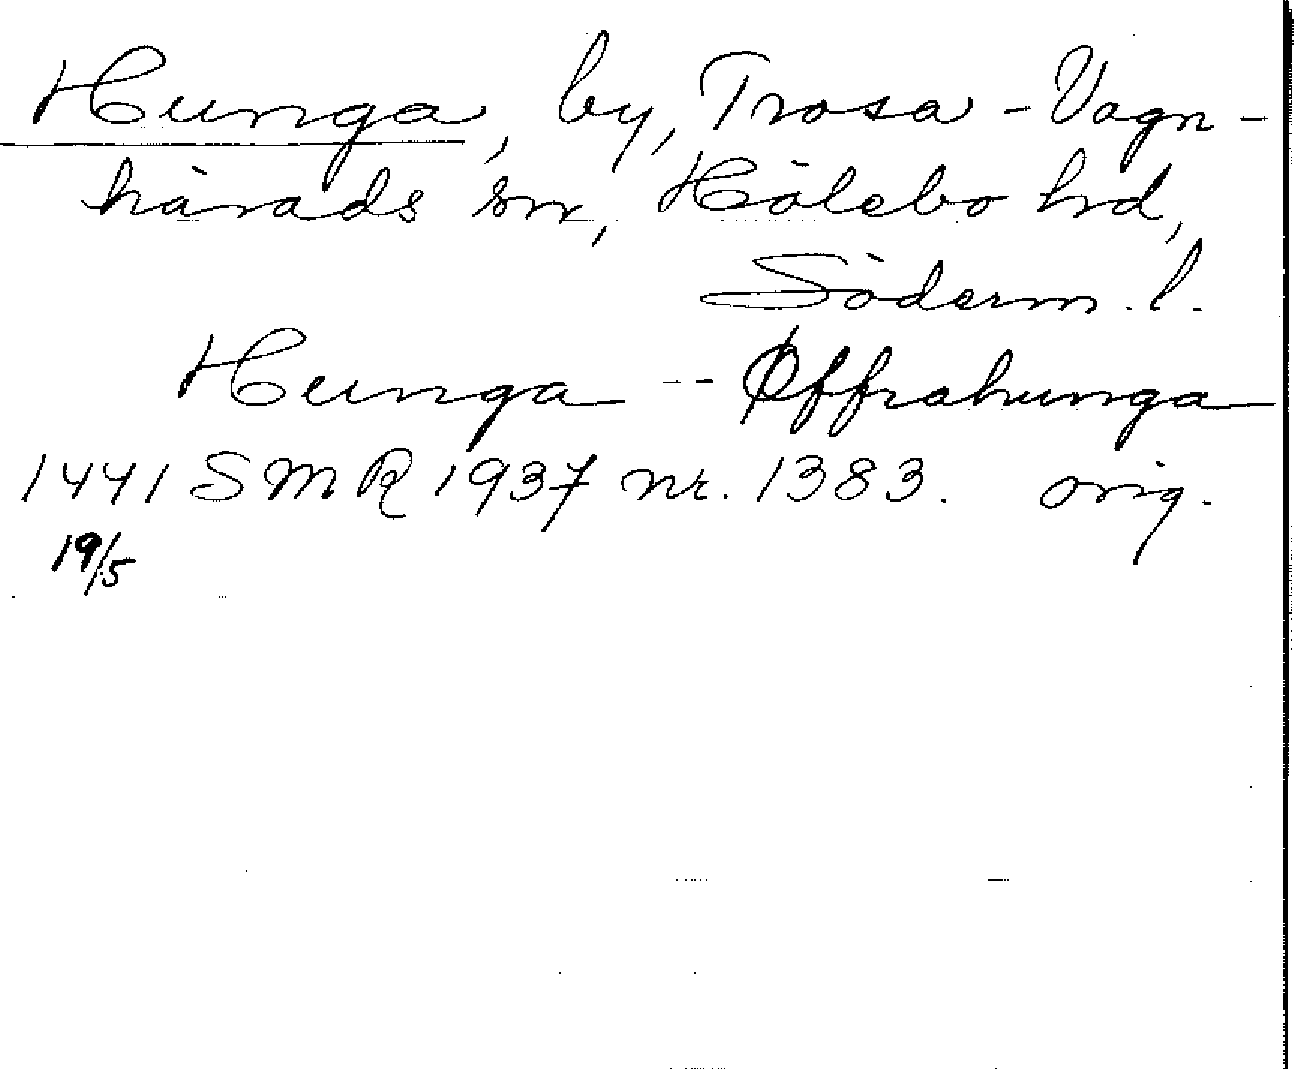 Hunga, by, Trosa-Vagn-
härads sn, Hölebo hrd,
Söderm. l.
Hunga -- Øffrahunga
1441 SMR 1937 nr. 1383. orig.
19/5